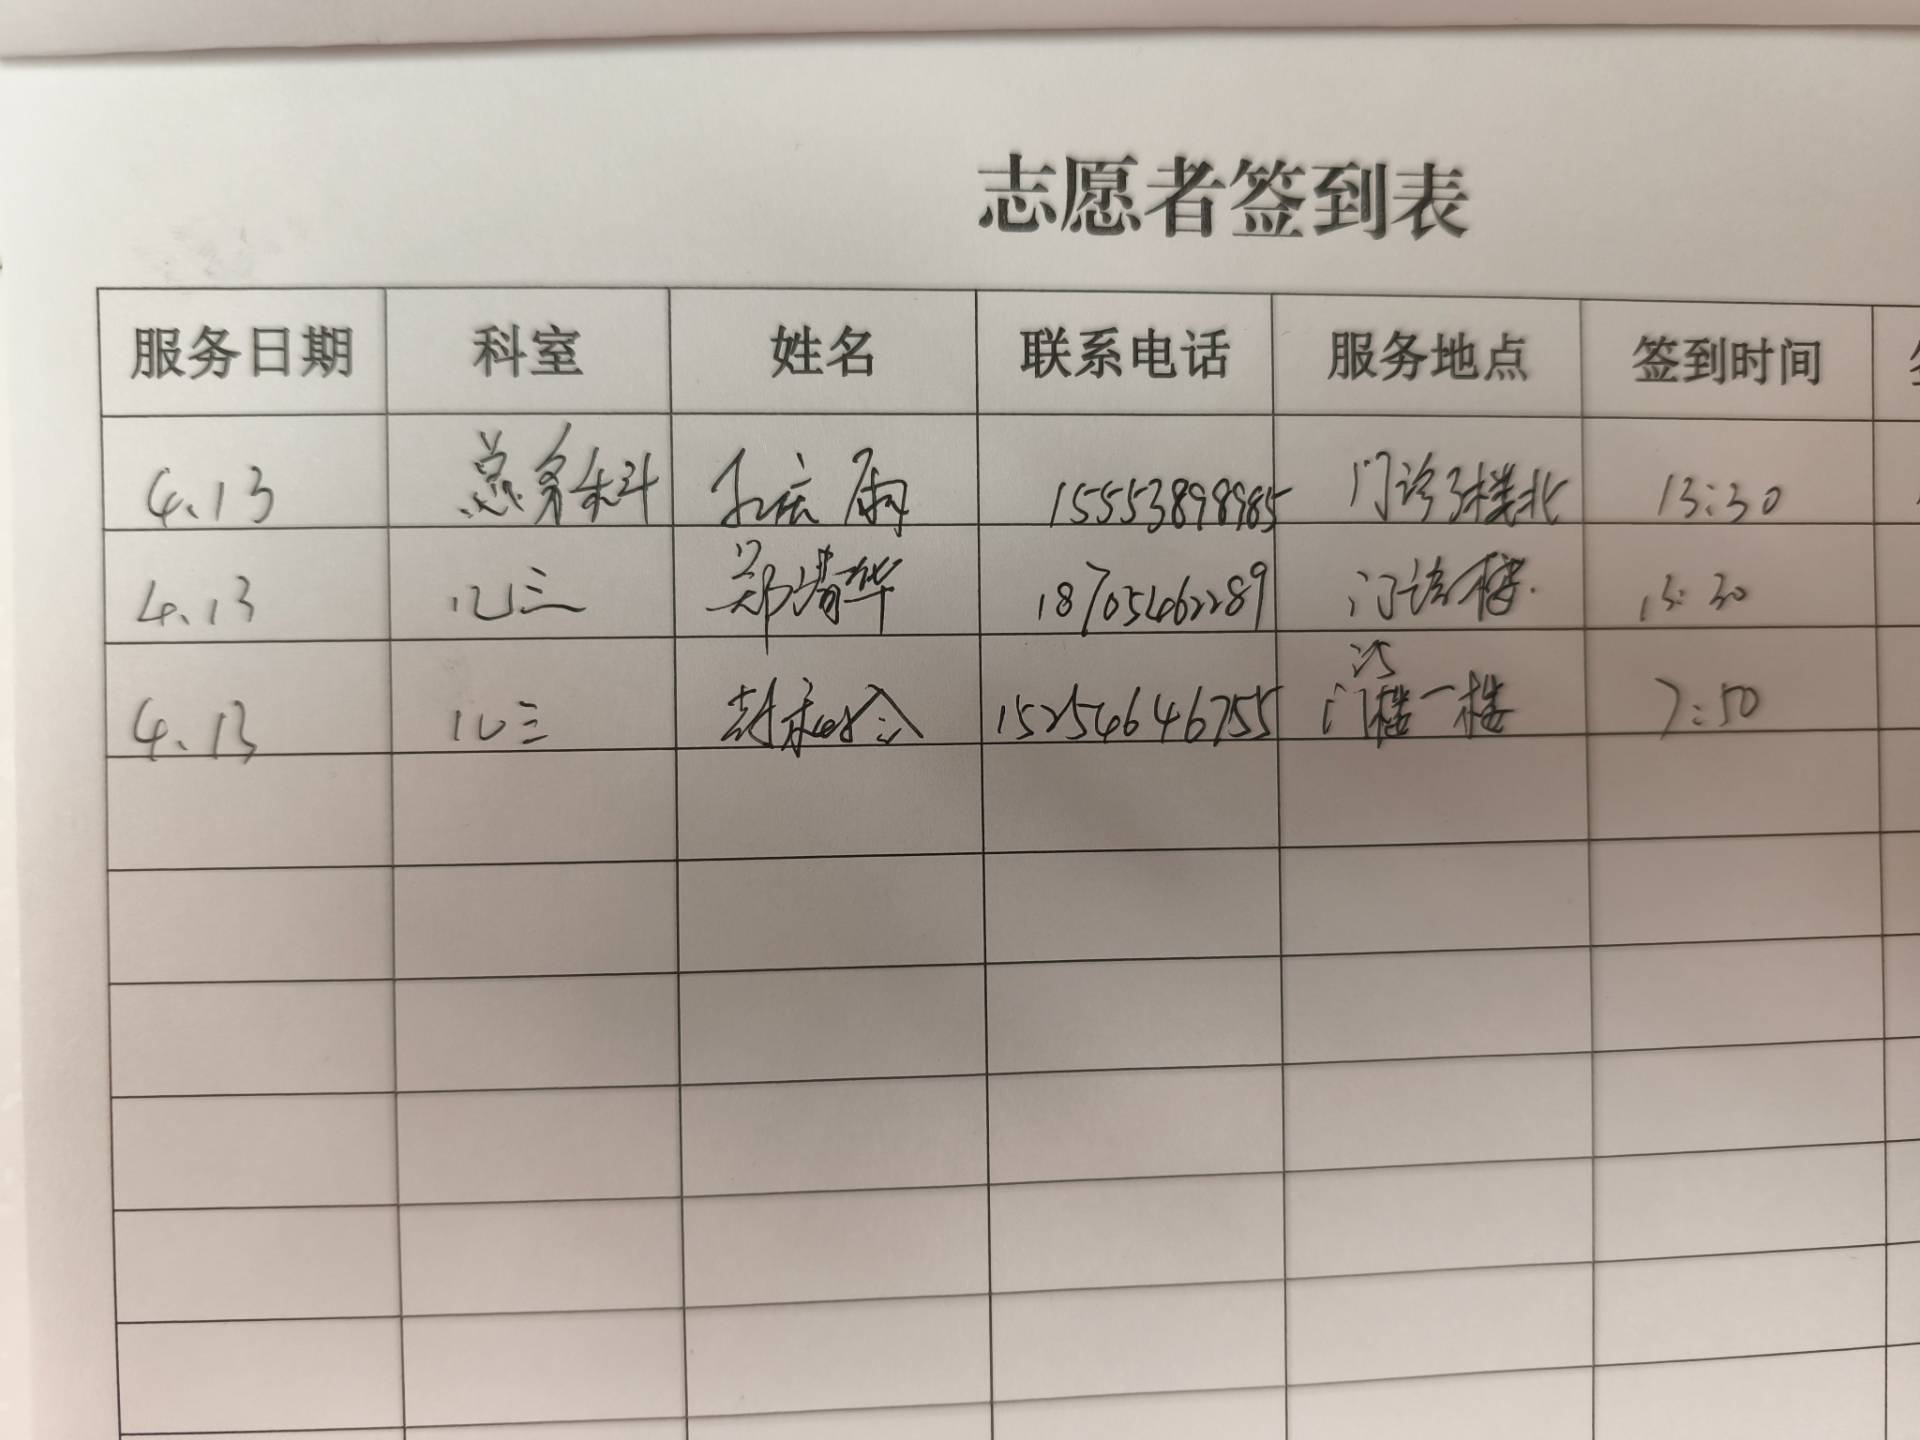 志愿者签到表
服务日期 科室 姓名 联系电话 服务地点 签到时间
4.13 总务科 15553898985 门诊3楼北 13:30
4.13 儿三 郑清华 18705462289 门诊楼. 13:30
4.13 儿三 15254646755 门诊楼一楼 7:50